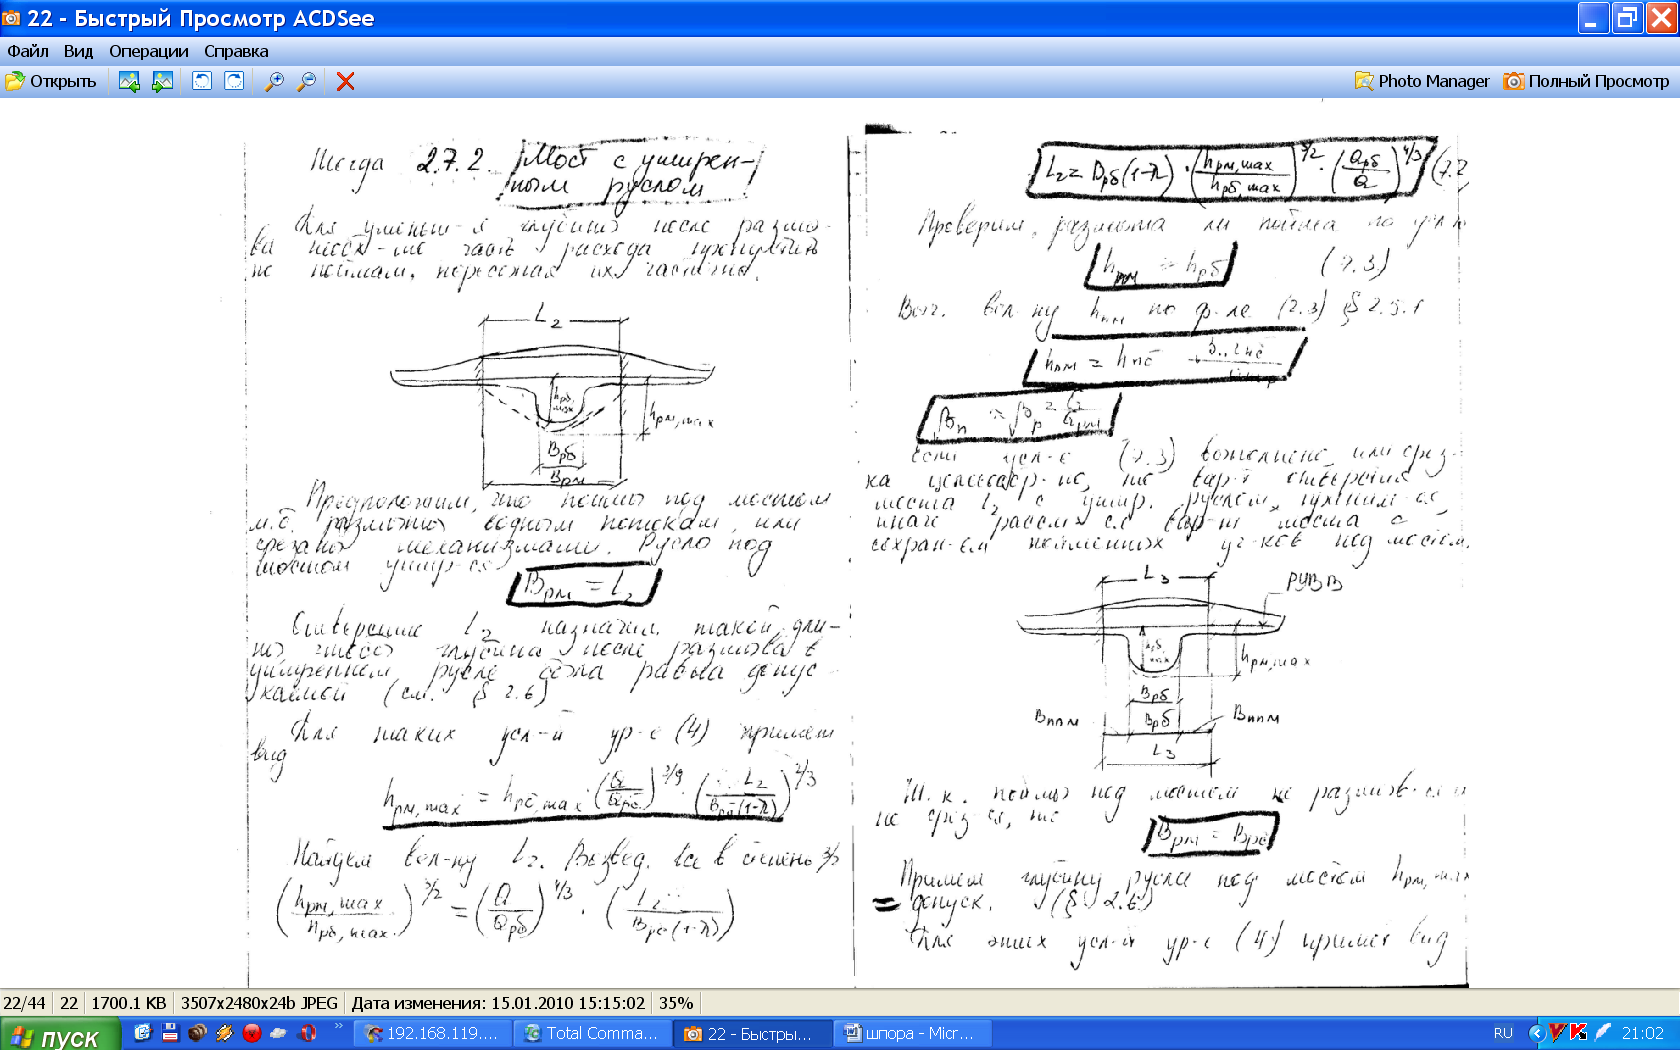 22 - Быстрый Просмотр ACDSee
Файл Вид Операции Справка
Открыть
Photo Manager Полный Просмотр
Тогда 2.7.2. Мост с уширен-
ным руслом
Для уменьш-я глубины после размы-
ва часть расхода пропустить
по поймам, их частично.
L₂
hрб, max
hрм, max
Bрб
Bрм
Предположим, что поймы под мостом
м.б. размыты водным потоком, или
срезаны механизмами. Русло под
мостом ушир-ся
Bрм = L₂
Отверстие L₂ назначим такой дли-
ны чтобы глубина после размыва в
уширенном русле была равна допус-
каемой (см. § 2.6)
Для таких усл-й ур-е (4) примет
вид
hрм, max = hрб, max · (Q/Qрб)^(8/9) · (L₂/Bрб(1-λ))^(2/3)
Найдем вел-ну L₂. Возвед. все в степень 3/2
(hрм, max/hрб, max)^(3/2) = (Q/Qрб)^(4/3) · (L₂/Bрб(1-λ))
L₂ = Bрб(1-λ) · (hрм, max/hрб, max)^(3/2) · (Qрб/Q)^(4/3) (7.2
Проверим, размыта ли пойма по усл
hпм = hрб (7.3)
Выч. вел-ну hпм по ф-ле (2.3) § 2.5.1
hпм = hпб
Если усл-е (7.3) выполнено, или срез-
ка целесообр-на, то вар-т отверстия
моста L₂ с ушир. руслом,
иначе рассм-ся вар-т моста с
сохран-ем пойменных уч-ков под мостом.
L₃
РУВВ
hрб, max
hрм, max
Bрб
Bппм Bрб Bппм
L₃
Т.к. поймы под мостом не размыв-ся и
не срез-ся, то
Bрм = Bрб
Примем глубину русла под мостом hрм, max
= допуск. (§ 2.6)
Для этих усл-й ур-е (4) примет вид
22/44 22 1700.1 KB 3507x2480x24b JPEG Дата изменения: 15.01.2010 15:15:02 35%
пуск 192.168.119.... Total Comma... 22 - Быстры... шпора - Micr... RU 21:02